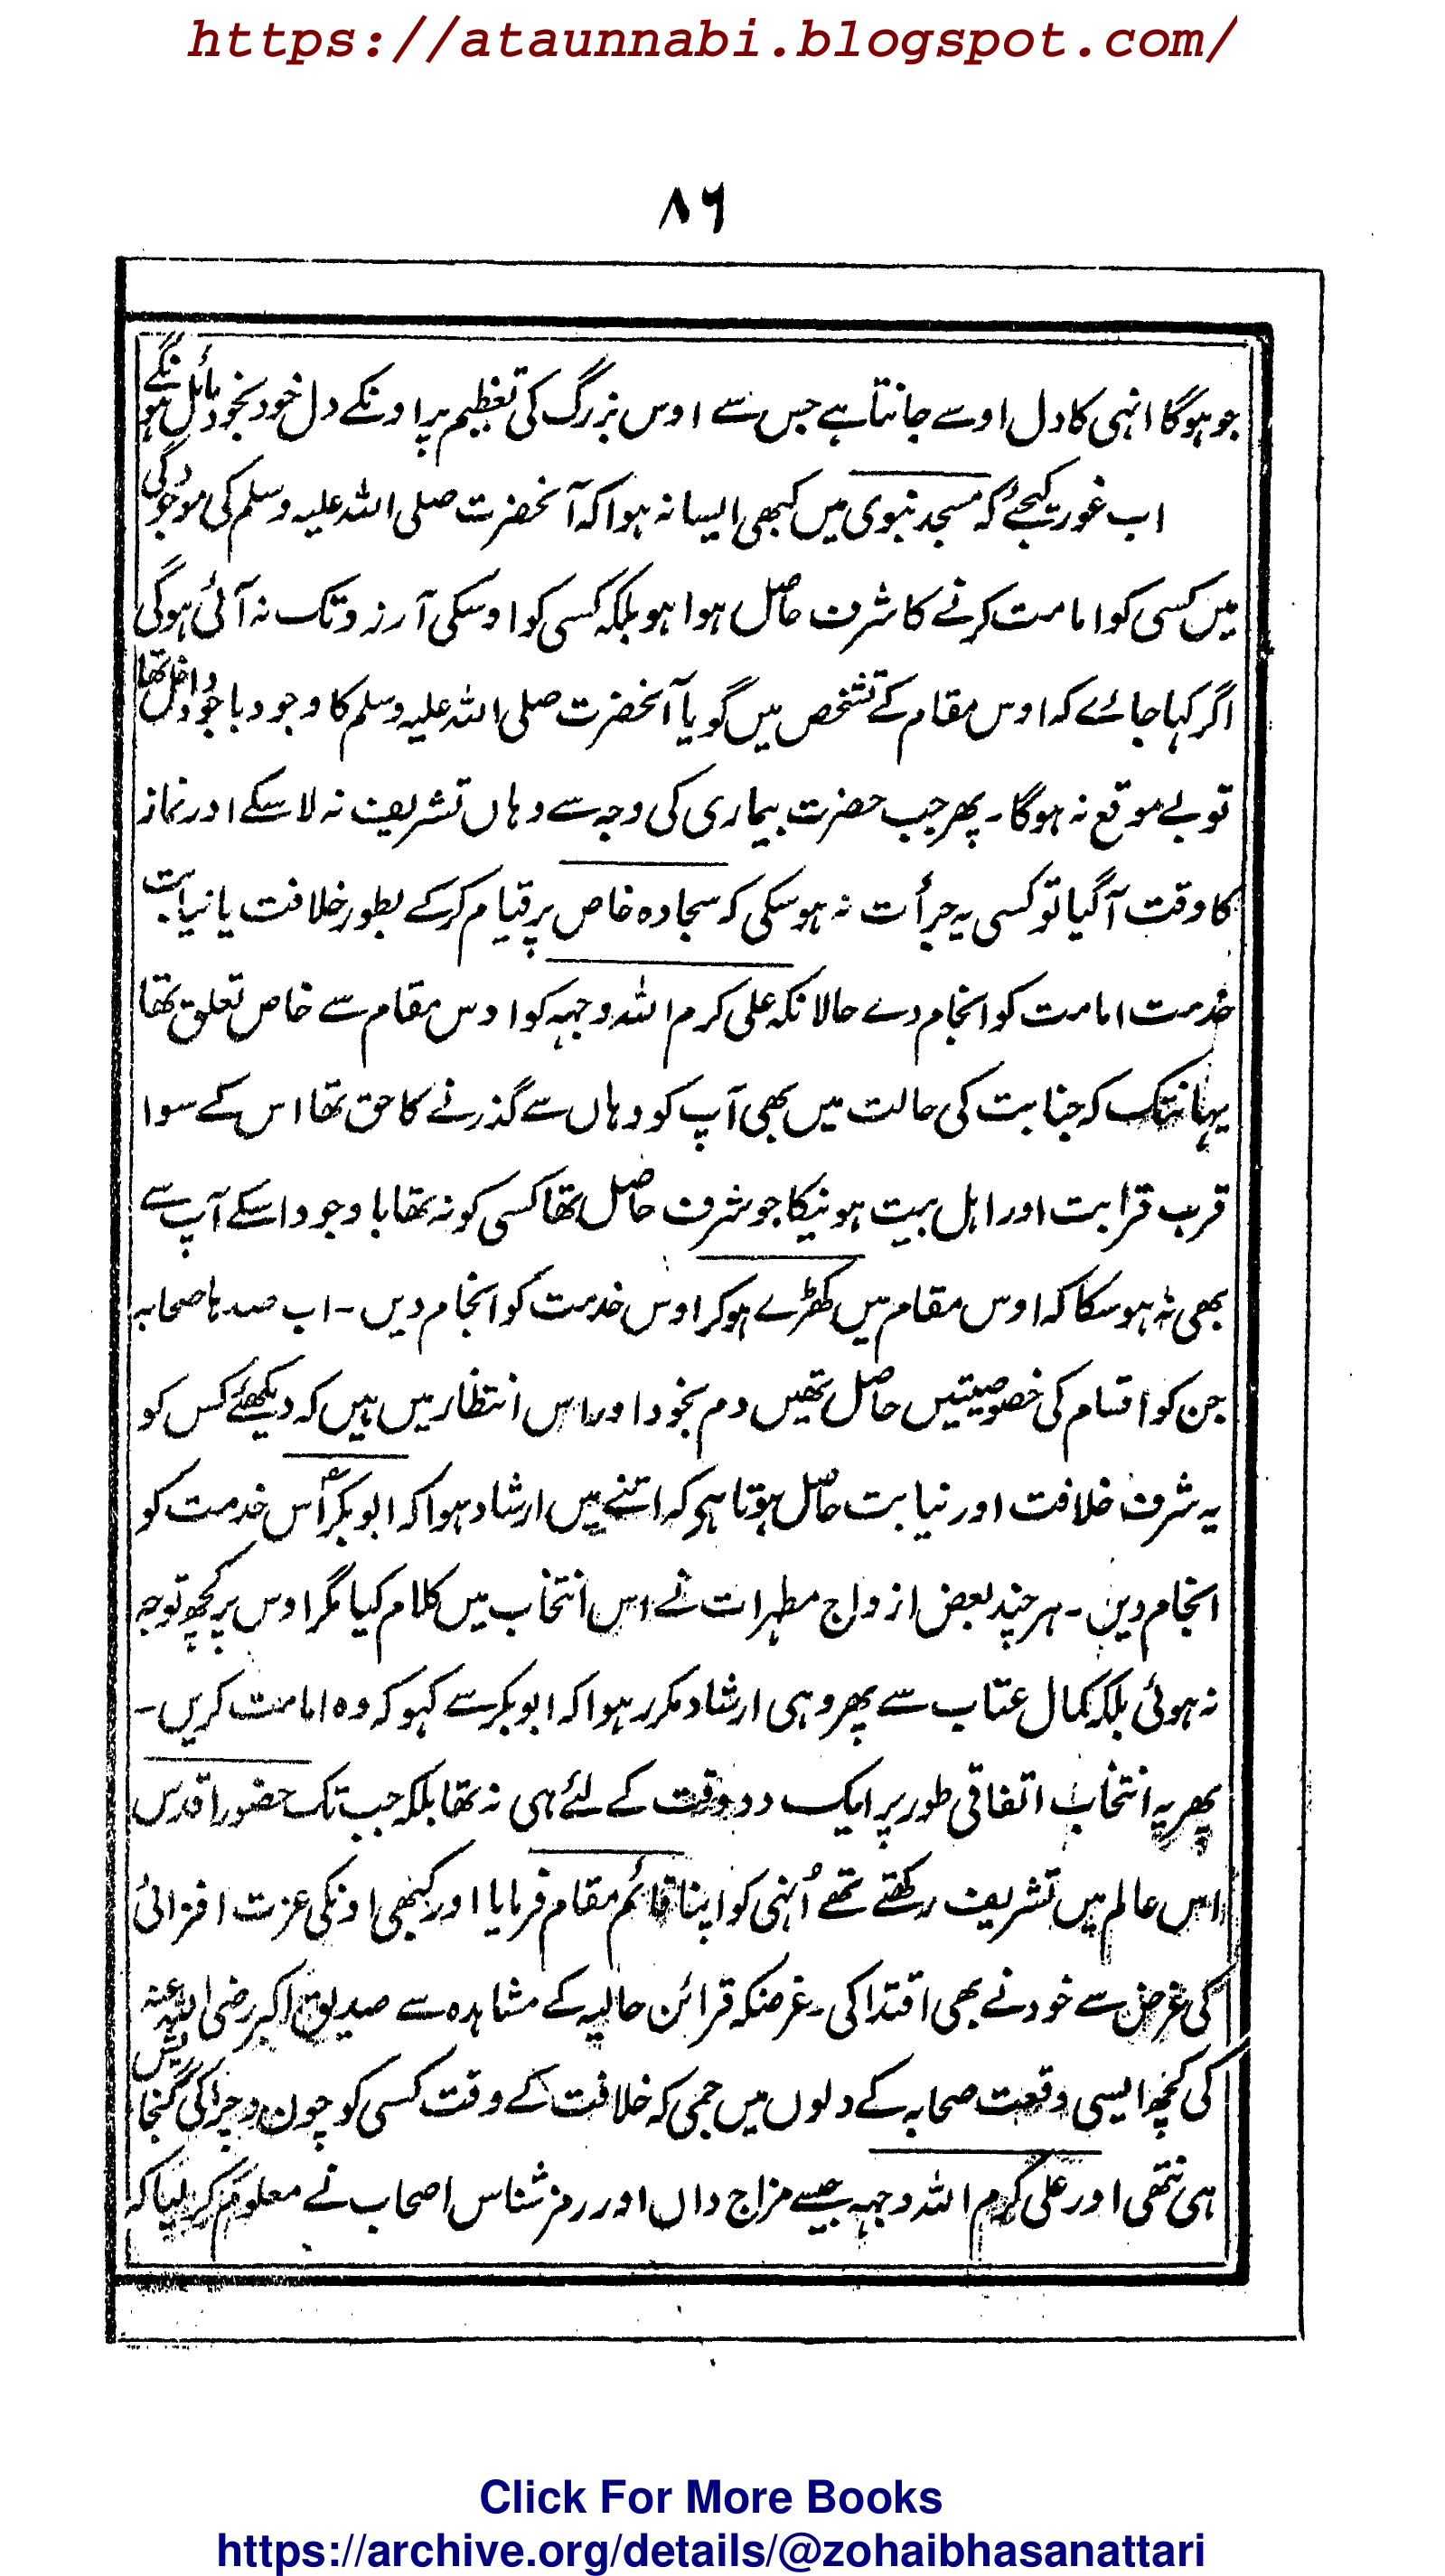 https://ataunnabi.blogspot.com/
۸۶
جو ہوگا انہی کا دل اوسے جانتا ہے جس سے اوس بزرگ کی تعظیم پر اونکے دل خود بخود مائل ہونگے
اب غور کیجئے کہ مسجد نبوی میں کبھی ایسا نہ ہوا کہ آنحضرت صلی اللہ علیہ وسلم کی موجودگی
میں کسی کو امامت کرنے کا شرف حاصل ہوا ہو بلکہ کسی کو اوسکی آرزو تک نہ آئی ہوگی
اگر کہا جائے کہ اوس مقام کے تشخص میں گویا آنحضرت صلی اللہ علیہ وسلم کا وجود باجود داخل تھا
تو بے موقع نہ ہوگا ۔ پھر جب حضرت بیماری کی وجہ سے وہاں تشریف نہ لاسکے اور نماز
کا وقت آگیا تو کسی یہ جرأت نہ ہوسکی کہ سجادہ خاص پر قیام کرکے بطور خلافت یا نیابت
خدمت امامت کو انجام دے حالانکہ علی کرم اللہ وجہہ کو اوس مقام سے خاص تعلق تھا
یہانتک کہ جنابت کی حالت میں بھی آپ کو وہاں سے گذرنے کا حق تھا اس کے سوا
قرب قرابت اور اہل بیت ہونیکا جو شرف حاصل تھا کسی کو نہ تھا باوجود اسکے آپ سے
بھی نہ ہوسکا کہ اوس مقام میں کھڑے ہوکر اوس خدمت کو انجام دیں ۔ اب صدہا صحابہ
جن کو اقسام کی خصوصیتیں حاصل تھیں دم بخود اور اس انتظار میں ہیں کہ دیکھئے کس کو
یہ شرف خلافت اور نیابت حاصل ہوتا ہی کہ اتنے میں ارشاد ہوا کہ ابوبکرؓ اس خدمت کو
انجام دیں ۔ ہر چند بعض ازواج مطہرات نے اس انتخاب میں کلام کیا مگر اوس پر کچھ توجہ
نہ ہوئی بلکہ کمال عتاب سے پھر وہی ارشاد مکرر ہوا کہ ابوبکر سے کہو کہ وہ امامت کریں ۔
پھر یہ انتخاب اتفاقی طور پر ایک دو وقت کے لئے ہی نہ تھا بلکہ جب تک حضور اقدس
اس عالم میں تشریف رکھتے تھے اُنہی کو اپنا قائم مقام فرمایا اور کبھی اونکی عزت افزائی
کی غرض سے خود نے بھی اقتدا کی ۔ غرضکہ قرائن حالیہ کے مشاہدہ سے صدیق اکبر رضی اللہ عنہ
کی کچھ ایسی وقعت صحابہ کے دلوں میں جمی کہ خلافت کے وقت کسی کو چون و چرا کی گنجایش
ہی نتھی اور علی کرم اللہ وجہہ جیسے مزاج داں اور رمز شناس اصحاب نے معلوم کر لیا کہ
Click For More Books
https://archive.org/details/@zohaibhasanattari